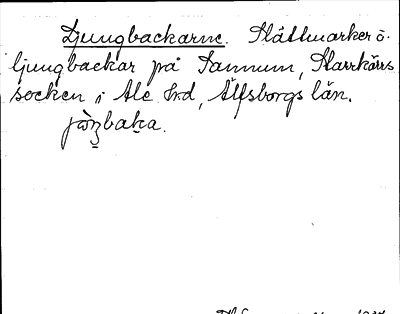 Ljungbackarne. Slåttmarker o.
ljungbackar på Tannum, Starrkärrs
socken i Ale hrd, Älfsborgs län.